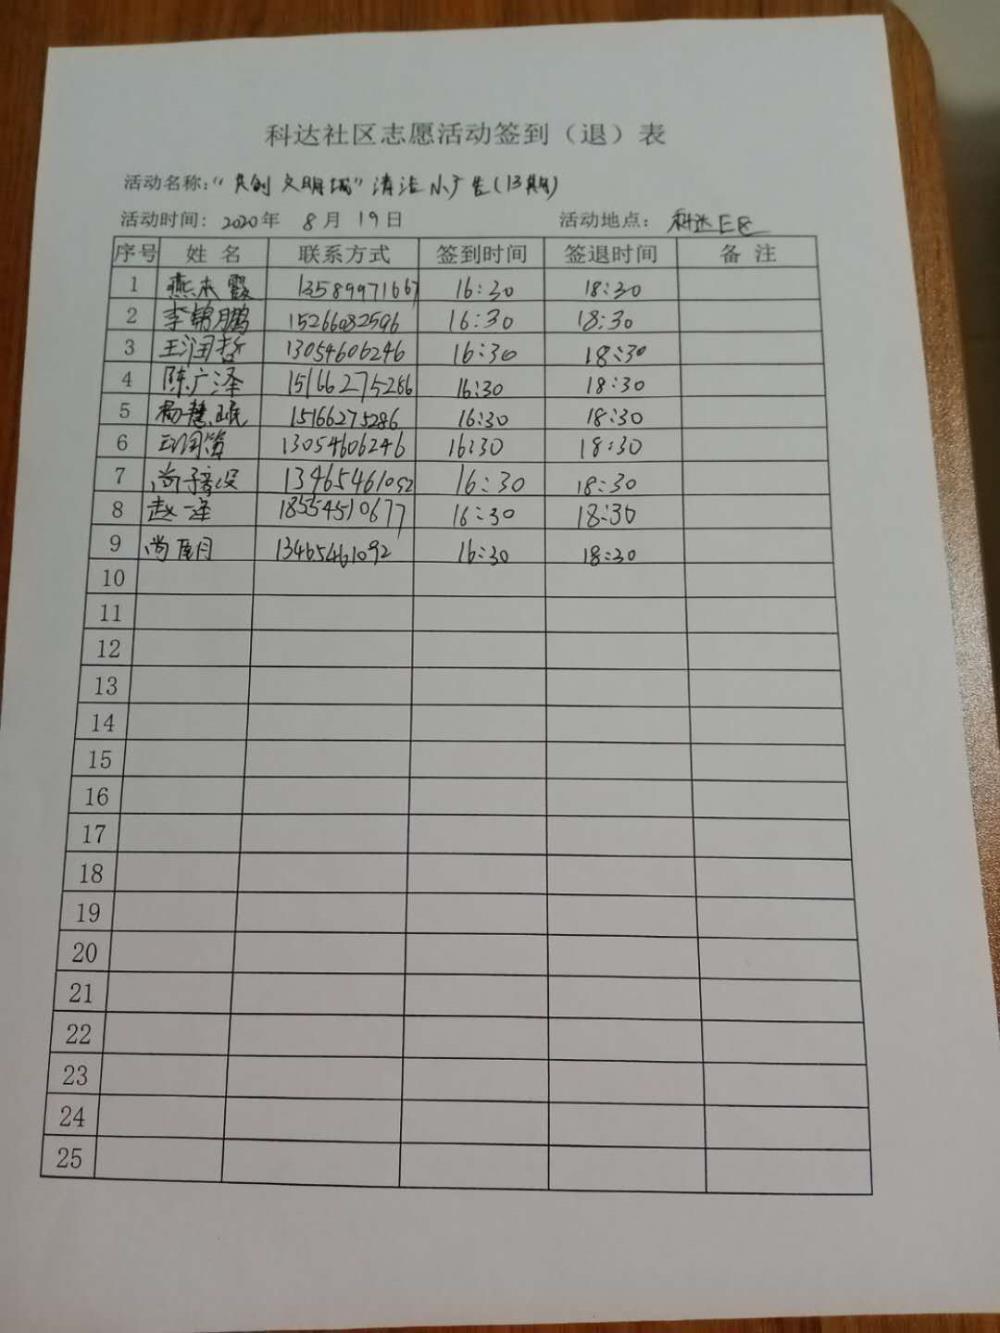 科达社区志愿活动签到（退）表
活动名称:"共创文明城"清洁小广告(13期)
活动时间: 2020年 8月 19日 活动地点: 科达E区
序号 姓名 联系方式 签到时间 签退时间 备注
1 燕本霞 13589971667 16:30 18:30
2 李锦鹏 15266082596 16:30 18:30
3 王润哲 13054606246 16:30 18:30
4 陈广泽 15166275286 16:30 18:30
5 杨慧珉 15166275286 16:30 18:30
6 王润箐 13054606246 16:30 18:30
7 尚子 13465461092 16:30 18:30
8 赵一泽 18554510677 16:30 18:30
9 尚 13465461092 16:30 18:30
10
11
12
13
14
15
16
17
18
19
20
21
22
23
24
25